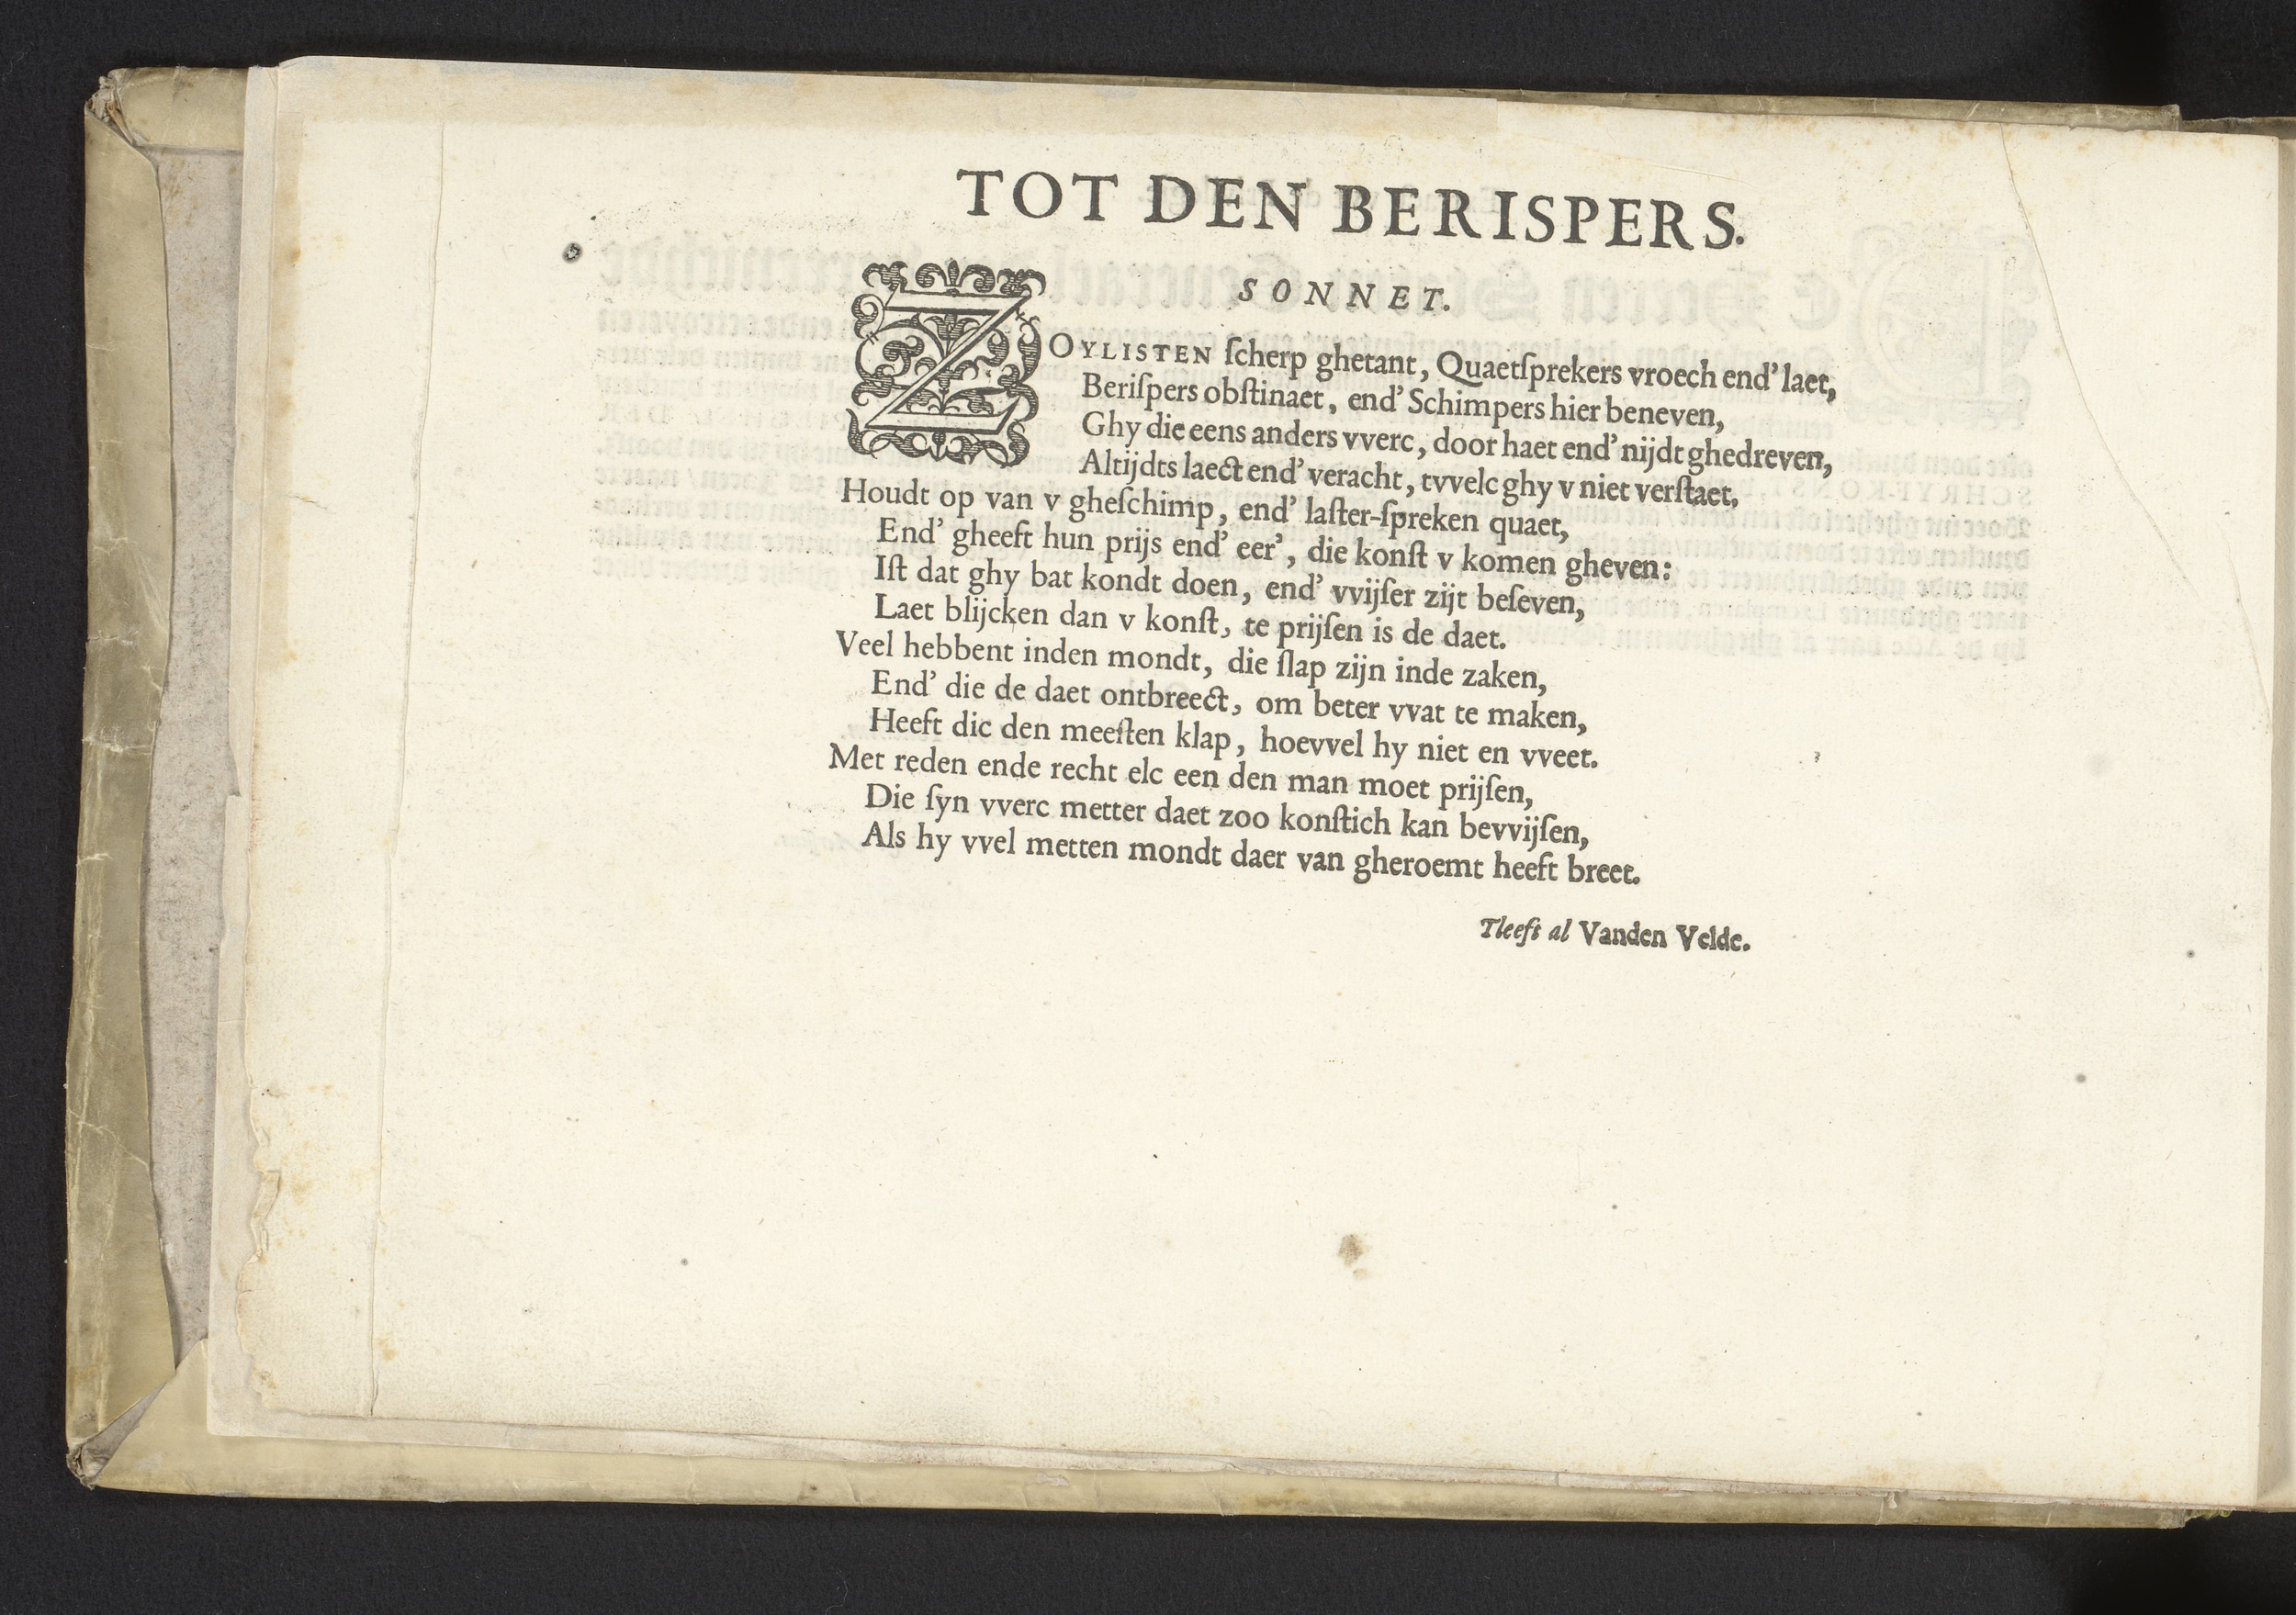 TOT DEN BERISPERS.
SONNET.
ZOYLISTEN ſcherp ghetant, Quaetſprekers vroech end' laet,
Beriſpers obſtinaet, end' Schimpers hier beneven,
Ghy die eens anders vverc, door haet end' nijdt ghedreven,
Altijdts laect end' veracht, tvvelc ghy v niet verſtaet,
Houdt op van v gheſchimp, end' laſter-ſpreken quaet,
End' gheeft hun prijs end' eer', die konſt v komen gheven:
Iſt dat ghy bat kondt doen, end' vvijſer zijt beſeven,
Laet blijcken dan v konſt, te prijſen is de daet.
Veel hebbent inden mondt, die ſlap zijn inde zaken,
End' die de daet ontbreect, om beter vvat te maken,
Heeft dic den meeſten klap, hoevvel hy niet en vveet.
Met reden ende recht elc een den man moet prijſen,
Die ſyn vverc metter daet zoo konſtich kan bevvijſen,
Als hy vvel metten mondt daer van gheroemt heeft breet.
Tleeft al Vanden Velde.